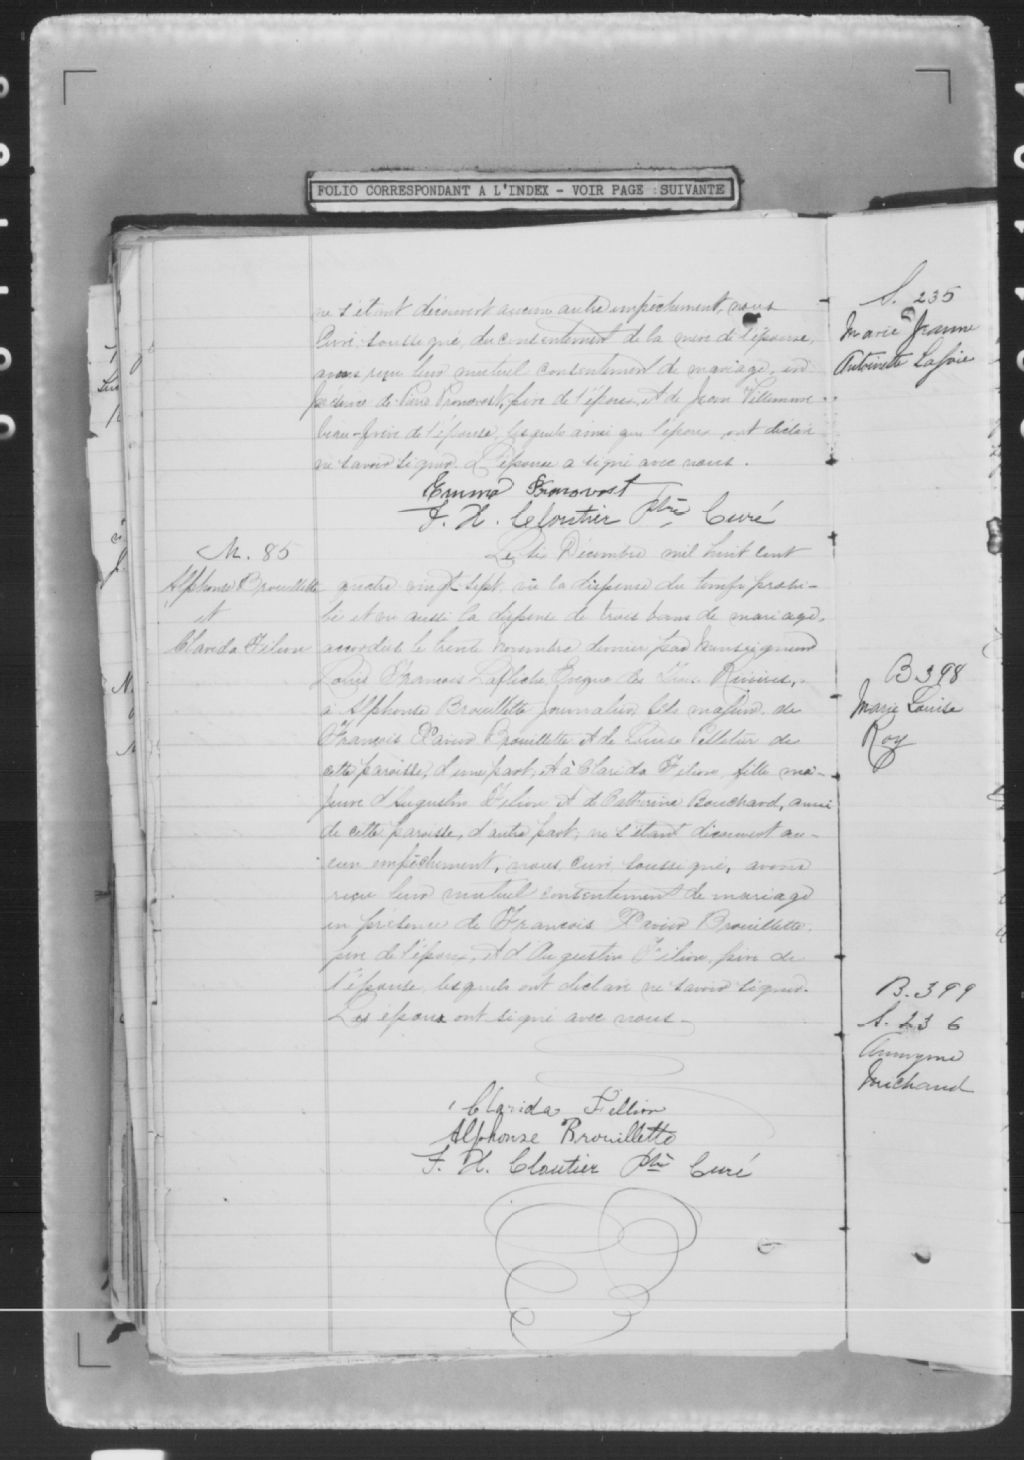 FOLIO CORRESPONDANT A L'INDEX - VOIR PAGE SUIVANTE
ne s'étant découvert aucun autre empêchement, nous
Curé soussigné, du consentement de la mère de l'épouse,
avons reçu leur mutuel consentement de mariage, en
présence de Pronovost, père de l'époux, et de Jean Villemure
beau-frère de l'épouse, lesquels ainsi que l'époux ont déclaré
ne savoir signer. L'épouse a signé avec nous.
Emma Pronovost
F. H. Cloutier Ptre Curé
M. 85
Alphonse Brouillette
et
Clarida Filion
Le six Décembre mil huit cent
quatre vingt sept, vu la dispense du temps prohi-
bé et vu aussi la dispense de trois bans de mariage,
accordées le trente novembre dernier par Monseigneur
Louis François Laflèche Évêque des Trois Rivières,
à Alphonse Brouillette journalier, fils majeur de
François Xavier Brouillette et de Louise Pelletier de
cette paroisse, d'une part, et à Clarida Filion, fille ma-
jeure d'Augustin Filion et de Catherine Bouchard, aussi
de cette paroisse, d'autre part; ne s'étant découvert au-
cun empêchement, nous, curé soussigné, avons
reçu leur mutuel consentement de mariage
en présence de François Xavier Brouillette,
père de l'époux, et d'Augustin Filion, père de
l'épouse, lesquels ont déclaré ne savoir signer.
Les époux ont signé avec nous.
Clarida Fellion
Alphonse Brouillette
F. H. Cloutier Ptre Curé
S. 235
Marie Jeanne
Antoinette Lajoie
B. 398
Marie Louise
Roy
B. 399
S. 236
Anonyme
Michaud